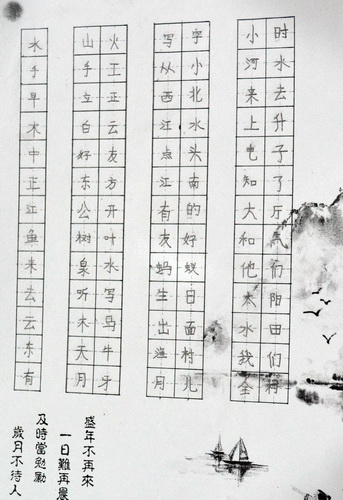 水 山火 写字 小时
手 手工 从小 河水
早 立正 西北 来去
木 白云 江水 上升
中 好友 点头 电子
正 东方 江南 知了
江 公开 有的 大厅
鱼 树叶 友好 和气
来 泉水 蚂蚁 他们
去 听写 生日 太阳
云 木马 出面 水田
东 天牛 村 我们
有 月牙 月儿 全村
盛年不再來
一日難再晨
及時當勉勵
歲月不待人